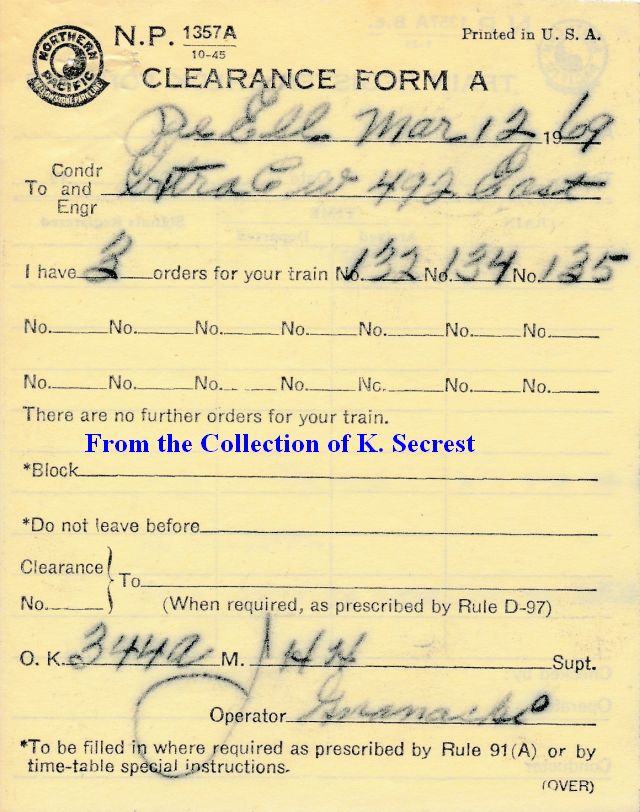 NORTHERN PACIFIC
YELLOWSTONE PARK LINE
N.P. 1357A
10-45
Printed in U. S. A.
CLEARANCE FORM A
Pe Ell Mar 12 1969
Condr
To and Extra C W 492 East
Engr
I have 3 orders for your train No. 132 No. 134 No. 135
No. No. No. No. No. No. No.
No. No. No. No. No. No. No.
There are no further orders for your train.
From the Collection of K. Secrest
*Block
*Do not leave before
Clearance
To
No. (When required, as prescribed by Rule D-97)
O. K. 344a M. HH Supt.
Operator
*To be filled in where required as prescribed by Rule 91(A) or by
time-table special instructions.
(OVER)